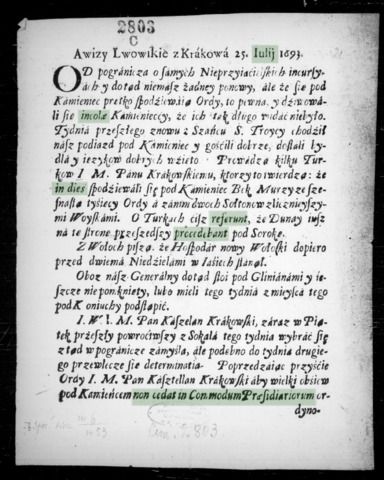 2803
C
Awizy Lwowskie z Krákowá 25. Iulij 1693.
OD pogránicza o sámych Nieprzyiaćielskich incursy-
ách y dotąd niemasz żadney ponowy, ále że się pod
Kámieniec prętko spodźiewáią Ordy, to pewna, y dźiwowá-
li się incolæ Kámienieccy, że ich ták długo widáć niebyło.
Tydniá przeszłego znowu z Száńcu S. Troycy chodźił
nász podiazd pod Kámieniec y gośćili dobrze, dostáli by-
dłá y iezykow dobrych wzięto. Prowádzą kilku Tur-
kow I M. Pánu Krákowskiemu, ktorzy to twierdzą: że
in dies spodźiewáli się pod Kámieniec Bek Murzy ze sze-
snastą tyśięcy Ordy á zánim dwoch Sołtonow z licznieyszy-
mi Woyskámi. O Turkách ćisz referunt, że Dunáy iusz
ná tę stronę przeszedszy procedebant pod Sorokę.
Z Wołoch piszą, że Hospodár nowy Wołoski dopiero
przed dwiemá Niedźielámi w Iásiech stánął.
Oboz nász Generálny dotąd stoi pod Gliniánámi y ie-
szcze nie pomknięty, lubo mieli tego tydniá z mieyscá tego
pod Koniuchy podstąpić.
I. W. I. M. Pan Kásztelan Krákowski, záraz w Pią-
tek przeszły powroćiwszy z Sokalá tego tydniá wybráć się
ztąd w pogránicze zámyśla, ále podobno do tydniá drugie-
go przewlecze się determinátia. Poprzedzáiąc przyśćie
Ordy I. M. Pan Kásztellan Krákowski áby wielki obsiew
pod Kámieńcem non cedat in Commodum Præsidiariorum or-
dyno-
2803